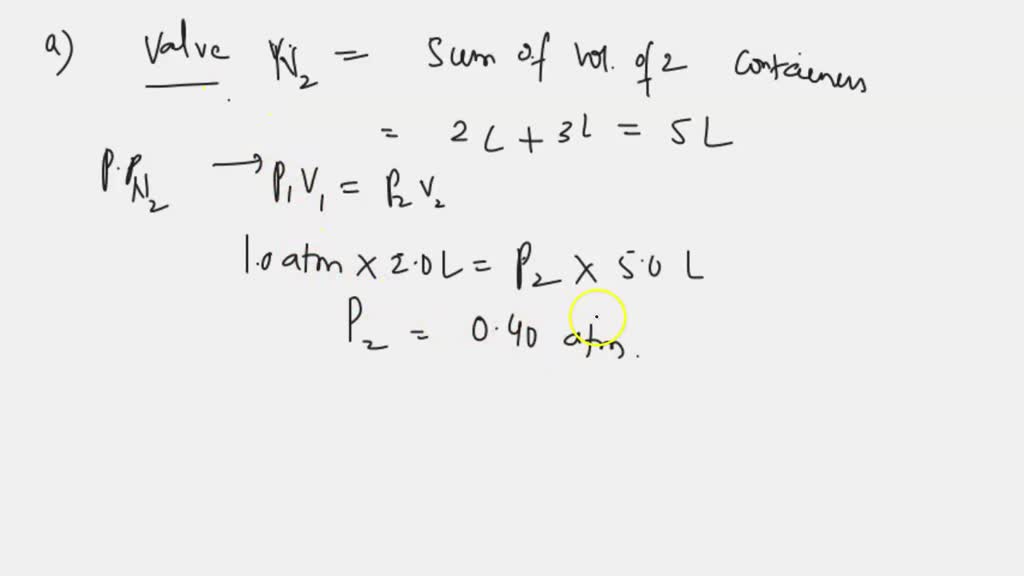 a) Valve N₂ = Sum of Vol. of 2 Containers
= 2 L + 3 L = 5 L
P.P N₂ → P₁V₁ = P₂ V₂
1.0 atm × 2.0 L = P₂ × 5.0 L
P₂ = 0.40 atm.